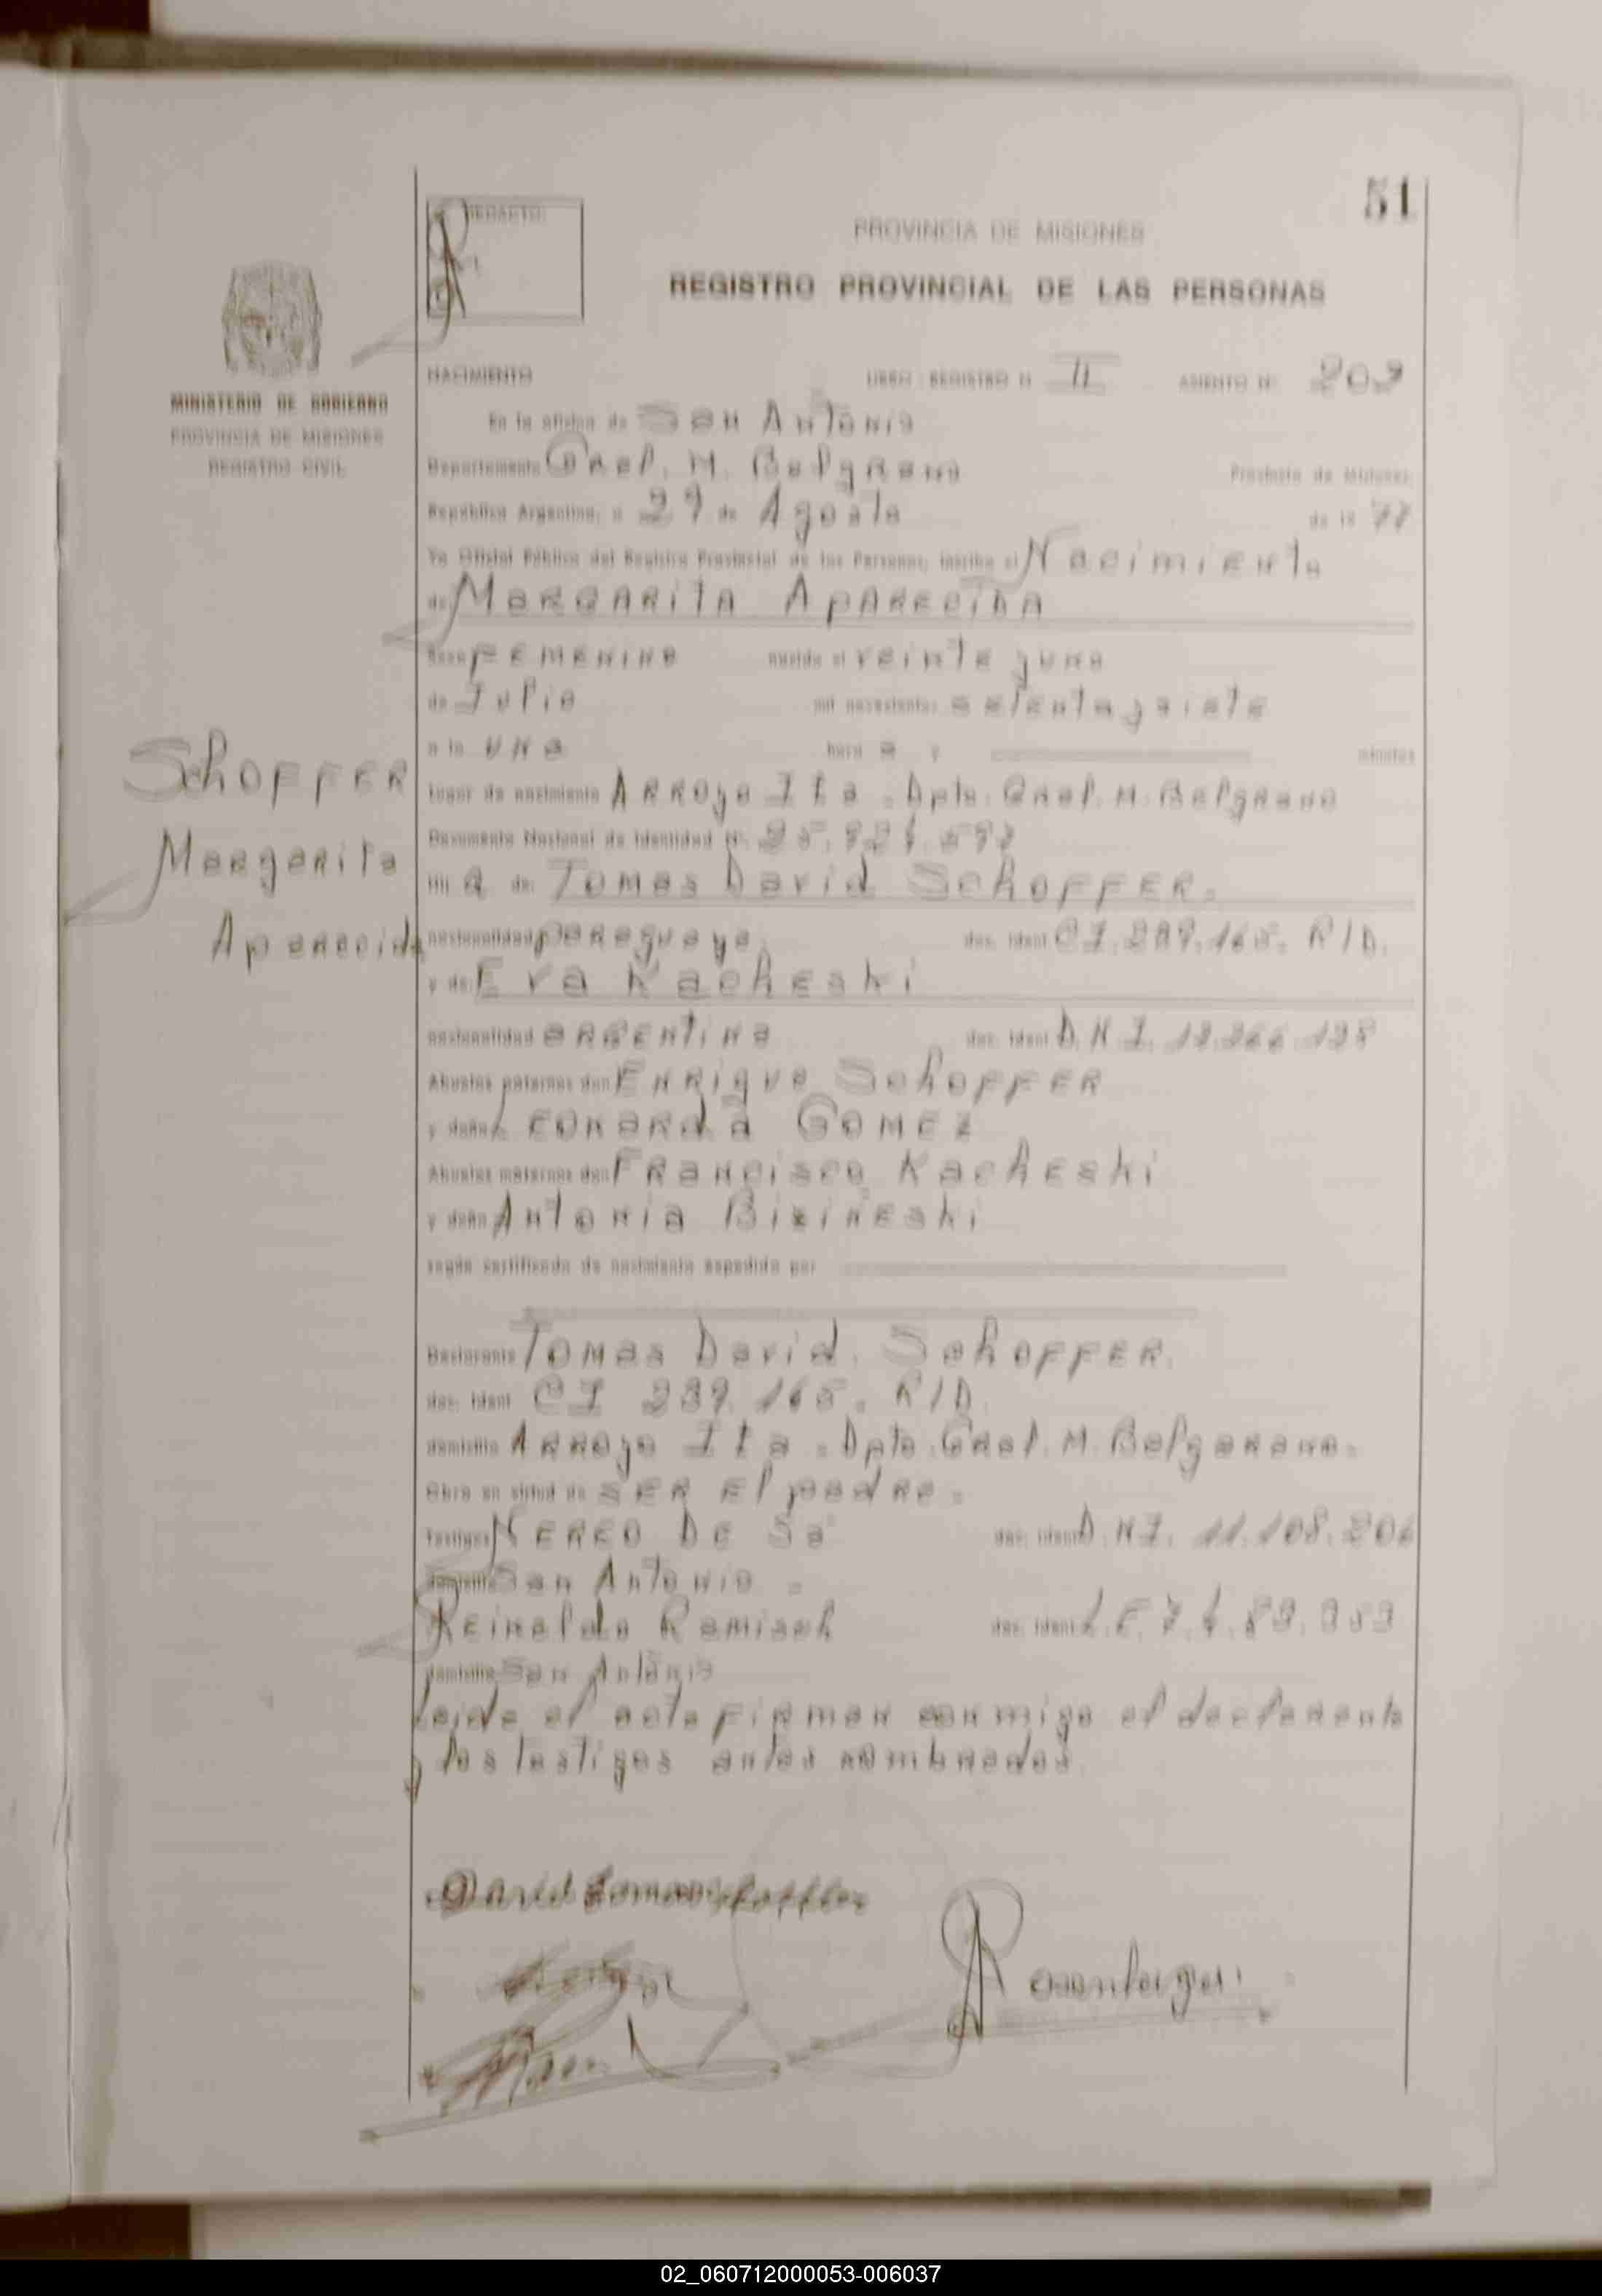 51
REDACTO:
PROVINCIA DE MISIONES
REGISTRO PROVINCIAL DE LAS PERSONAS
MINISTERIO DE GOBIERNO
PROVINCIA DE MISIONES
REGISTRO CIVIL
NACIMIENTO LIBRO REGISTRO N II ASIENTO Nº
En la oficina de San Antonio
Departamento Gral. M. Belgrano Provincia de Misiones
República Argentina, a de Agosto de 19 77
Yo Oficial Público del Registro Provincial de las Personas, inscribo el Nacimiento
de Margarita Aparecida
Sexo Femenino nacido el veinte yuno
de Julio mil novecientos setenta y siete
a la una hora s y minutos
Lugar de nacimiento Arroyo Ita - Dpto. Gral. M. Belgrano
Documento Nacional de Identidad Nº
Schoffer
Margarita
Aparecida
Hij a de: Tomas David Schoffer.
nacionalidad paraguaya. doc. ident C.I. R/D.
y de Eva Kacheski
nacionalidad argentina doc. ident D.N.I.
Abuelos paternos don Enrique Schoffer
y doña Leonarda Gomez
Abuelos maternos don Francisco Kacheski
y doña Antonia
según certificado de nacimiento expedido por
Declarante Tomas David. Schoffer.
doc. ident C.I. R/D.
domicilio Arroyo Ita - Dpto. Gral. M. Belgarano.
Obra en virtud de ser el padre.
Testigos Nereo De Sa doc. ident D.N.I. 11.108.206
domicilio San Antonio
Reinaldo Ramisch doc. ident L.E.
domicilio San Antonio
Leida el acta firman conmigo el declarante
y los testigos antes nombrados
02_060712000053-006037